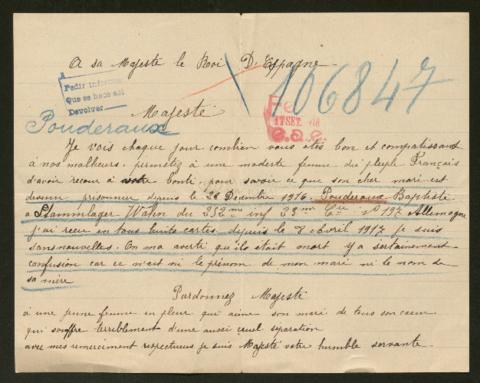 A sa Majesté le Roi D'Espagne
Pedir informe
Que se hace así
Devolver
106847
17 SET.
Majesté
Pouderaux
Je vois chaque jour combien vous êtes bon et compatissant
à nos malheurs. permetez à une modeste femme du pleple Français
d'avoir recour à votre bonté, pour savoir ce que son cher mari est
devenu prisonnier depuis le Décembre 1916. Pouderaux Baptiste
a Stammlager Wahn du 252me inf 23me Cie no 197 Allemagne
j'ai recu en tous huite cartes depuis le 8 Avril 1917 je suis
sans nouvelles. On ma averti qu'ils était mort y a sertainement
confusion car ce n'est ni le prénom de mon mari ni le nom de
sa mère
Pardonnez Majesté
à une jeune femme en pleur qui aime son mari de tous son cœur
qui souffre terriblement d'une aussi cruel séparation
avec mes remerciment respectueux je suis Majesté votre humble servante